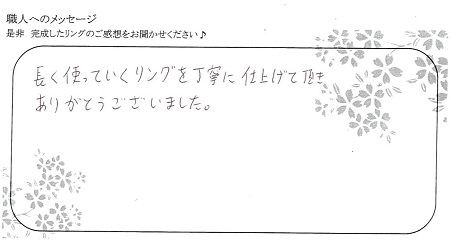 職人へのメッセージ
是非 完成したリングのご感想をお聞かせください♪
長く使っていくリングを丁寧に仕上げて頂き
ありがとうございました。